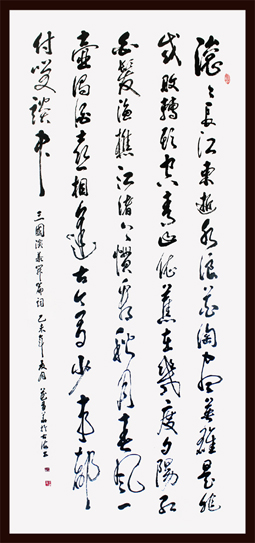 滚々長江東逝水浪花淘尽英雄是非
成敗轉頭空青山依舊在幾度夕陽紅
白髮漁樵江渚上慣看秋月春風一
壺濁酒喜相逢古今多少事都々
付笑談中
三國演義開篇詞 己未年夏月